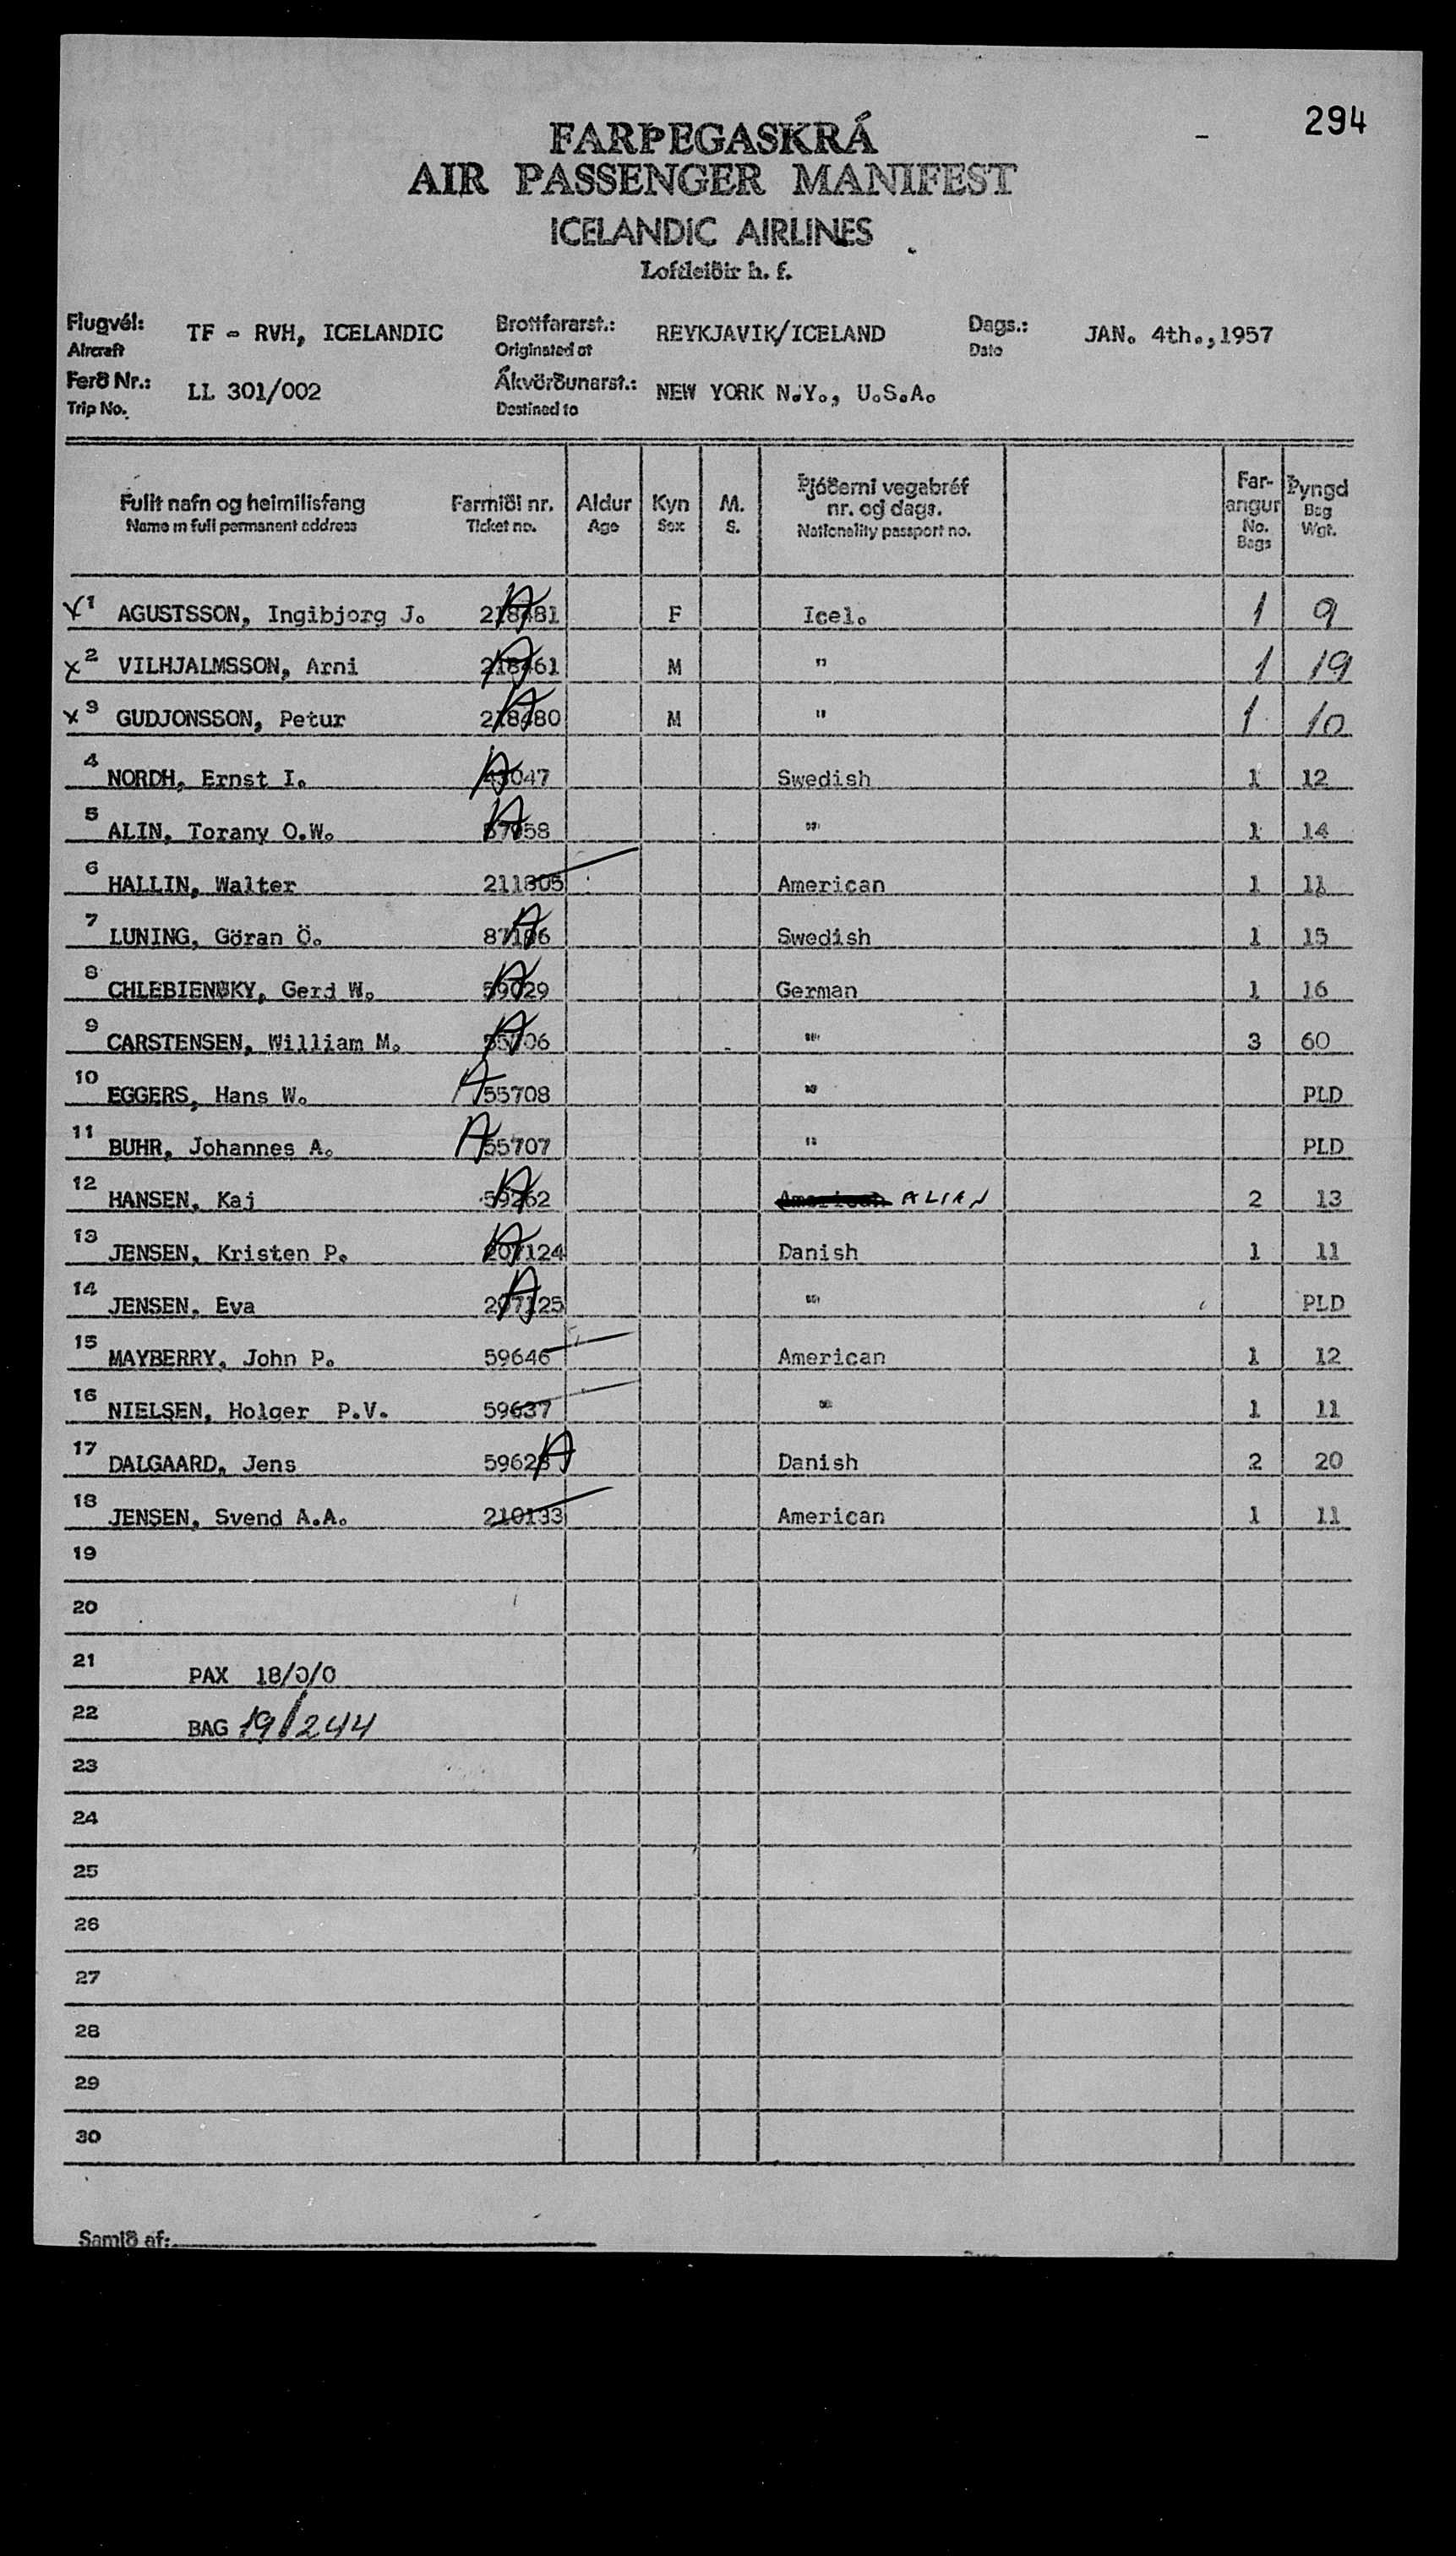 294
FARÞEGASKRÁ
AIR PASSENGER MANIFEST
ICELANDIC AIRLINES
Loftleiðir h. f.
Flugvél: TF - RVH, ICELANDIC Brottfararst.: REYKJAVIK/ICELAND Dags.: JAN. 4th.,1957
Aircraft Originated at Date
Ferð Nr.: LL 301/002 Ákvörðunarst.: NEW YORK N.Y., U.S.A.
Trip No. Destined to
Fullt nafn og heimilisfang Farmiði nr. Aldur Kyn M. Þjóðerni vegabréf nr. og dags. Far-angur Þyngd
Name in full permanent address Ticket no. Age Sex S. Nationality passport no. No. Bags Bag Wgt.
X 1 AGUSTSSON, Ingibjorg J. 218481 A F Icel. 1 9
X 2 VILHJALMSSON, Arni 218461 A M " 1 19
X 3 GUDJONSSON, Petur 218480 A M " 1 10
4 NORDH, Ernst I. A Swedish 1 12
5 ALIN, Torany O.W. A " 1 14
6 HALLIN, Walter 211805 American 1 11
7 LUNING, Göran Ö. A Swedish 1 15
8 CHLEBIENSKY, Gerd W. 59029 A German 1 16
9 CARSTENSEN, William M. 55706 A " 3 60
10 EGGERS, Hans W. A 55708 " PLD
11 BUHR, Johannes A. A 55707 " PLD
12 HANSEN, Kaj 59262 A American ALIAN 2 13
13 JENSEN, Kristen P. 207124 A Danish 1 11
14 JENSEN, Eva 207125 A " PLD
15 MAYBERRY, John P. 59646 American 1 12
16 NIELSEN, Holger P.V. 59637 " 1 11
17 DALGAARD, Jens A Danish 2 20
18 JENSEN, Svend A.A. 210133 American 1 11
19
20
21 PAX 18/0/0
22 BAG 19/244
23
24
25
26
27
28
29
30
Samið af: